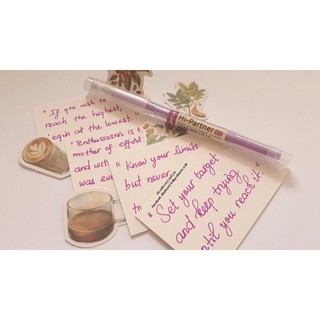 "If you wish to
reach the highest,
begin at the lowest."
"Enthusiasm is t
mother of effort
and wit
was eve
"Know your limits
but never
to
"Set your target
and keep trying
until you reach it."
Hi-Partner